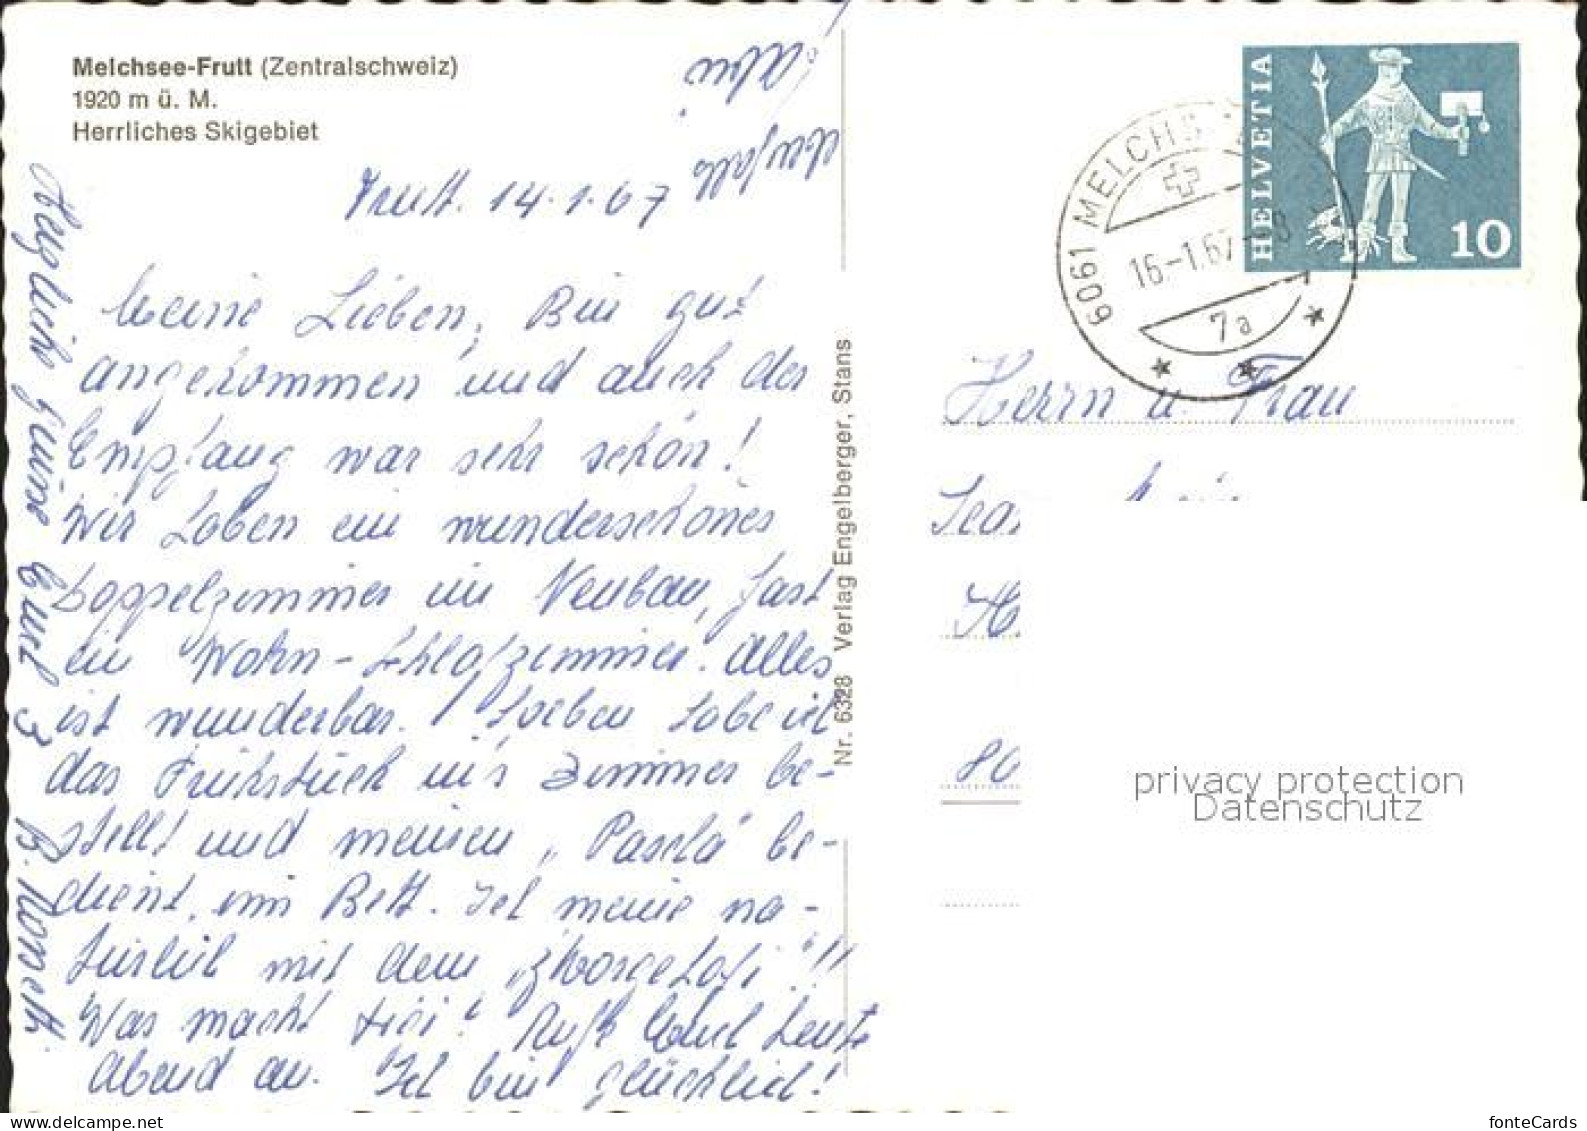 Melchsee-Frutt (Zentralschweiz)
1920 m ü. M.
Herrliches Skigebiet
Frutt. 14.1.67
Meine Lieben, Bin gut
angekommen und auch der
Empfang war sehr schön!
Wir haben ein wunderschönes
Doppelzimmer im Neubau, fast
ein Wohn-Schlafzimmer. Alles
ist wunderbar. Soeben habe ich
das Frühstück in's Zimmer be-
stellt und meinen „Pascha" be-
dient, im Bett. Ich meine na-
türlich mit dem !!
Was macht ? Rufe Euch heute
Abend an. Ich bin glücklich!
Herzliche Grüsse Euch 3
Nr. 6328 Verlag Engelberger, Stans
6061 MELCHS
16-1.67-8
7a
HELVETIA
10
Herrn u. Frau
privacy protection
Datenschutz
fonteCards